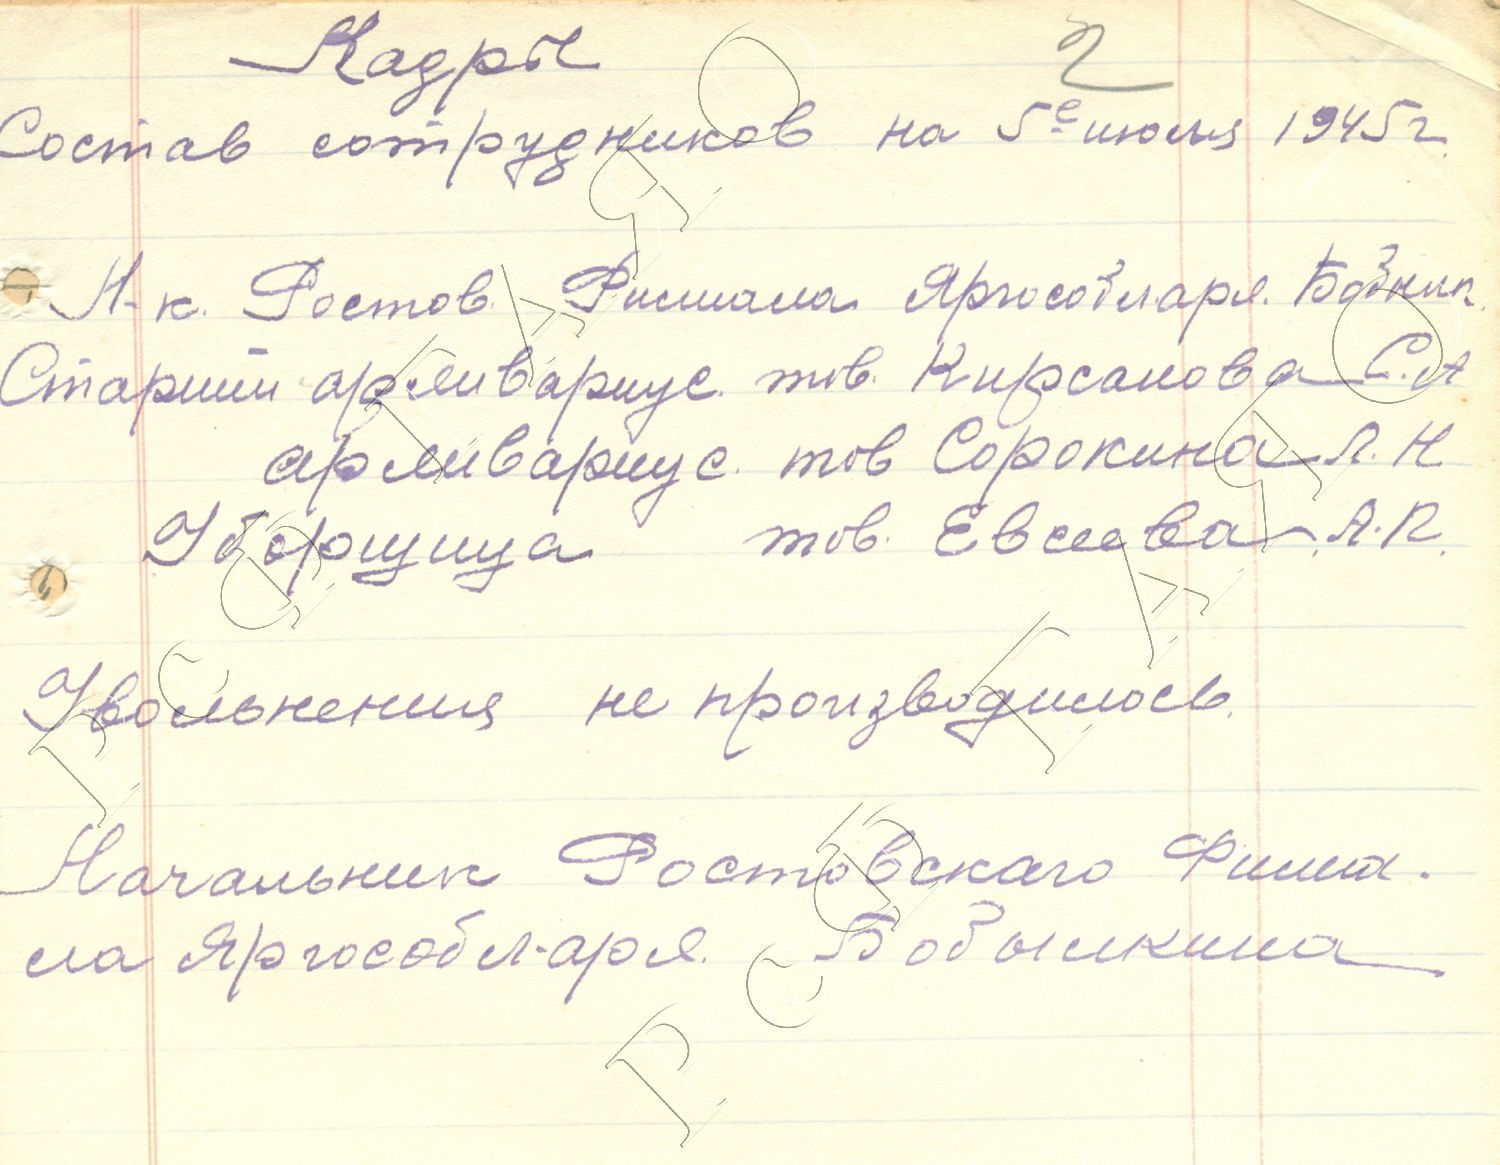 Кадры 2
Состав сотрудников на 5е июля 1945 г.
Н-к. Ростов. Филиала Яргособл.арх.
Старший архивариус. тов. Кирсанова С. А
архивариус. тов Сорокина Л. Н
Уборщица тов. Евсеева А. П.
Увольнения не производилось.
Начальник Ростовскаго Филиа-
ла Яргособл-арх. Бобылкина
РСФ ГАЯО
РСФ ГАЯО